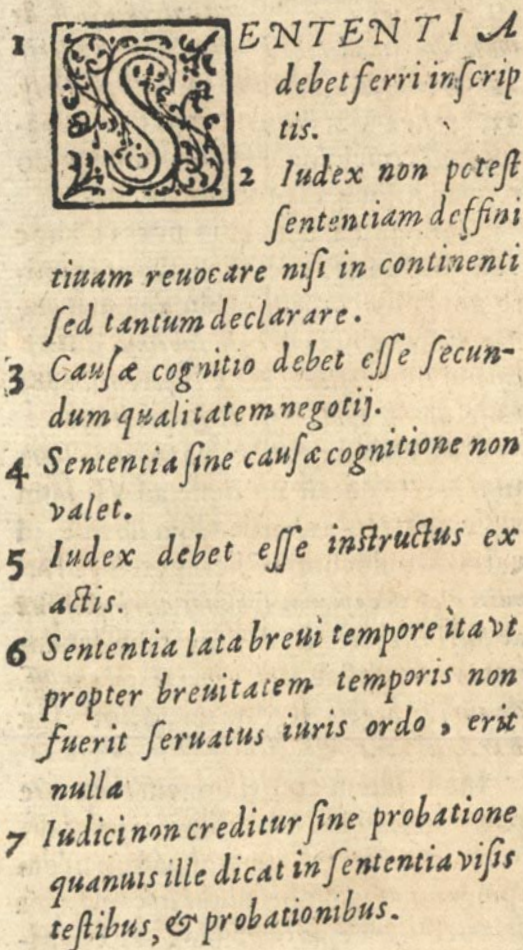 1 SENTENTIA
debet ferri in scrip
tis.
2 Iudex non potest
sententiam deffini
tiuam reuocare nisi in continenti
sed tantum declarare.
3 Causæ cognitio debet esse secun-
dum qualitatem negotij.
4 Sententia sine causæ cognitione non
valet.
5 Iudex debet esse instructus ex
actis.
6 Sententia lata breui tempore ita vt
propter breuitatem temporis non
fuerit seruatus iuris ordo, erit
nulla
7 Iudici non creditur sine probatione
quanuis ille dicat in sententia visis
testibus, & probationibus.